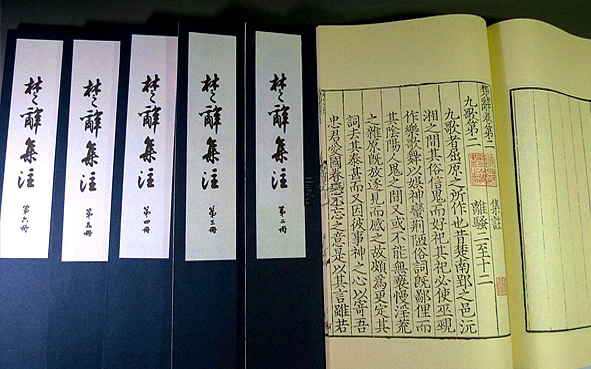 楚辭卷第二
集註
九歌第二
離騷二至十二
九歌者屈原之所作也昔楚南郢之邑沅
湘之間其俗信鬼而好祀其祀必使巫覡
作樂歌舞以娛神蠻荊陋俗詞旣鄙俚而
其陰陽人鬼之間又或不能無褻慢淫荒
之雜原旣放逐見而感之故頗為更定其
詞去其泰甚而又因彼事神之心以寄吾
忠君愛國眷戀不忘之意是以其言雖若
楚辭集注
第二冊
楚辭集注
第三冊
楚辭集注
第四冊
楚辭集注
第五冊
楚辭集注
第六冊